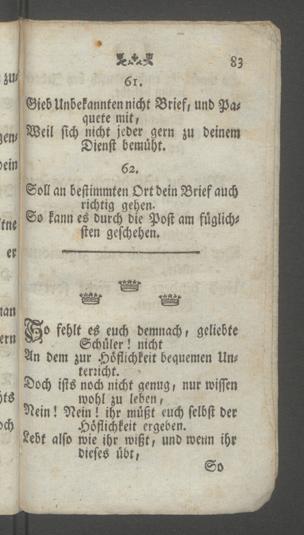 83
61.
Gieb Unbekannten nicht Brief, und Pa-
quete mit,
Weil sich nicht jeder gern zu deinem
Dienst bemüht.
62.
Soll an bestimmten Ort dein Brief auch
richtig gehen.
So kann es durch die Post am füglich-
sten geschehen.
So fehlt es euch demnach, geliebte
Schüler! nicht
An dem zur Höflichkeit bequemen Un-
terricht.
Doch ists noch nicht genug, nur wissen
wohl zu leben,
Nein! Nein! ihr müßt euch selbst der
Höflichkeit ergeben.
Lebt also wie ihr wißt, und wenn ihr
dieses übt,
So